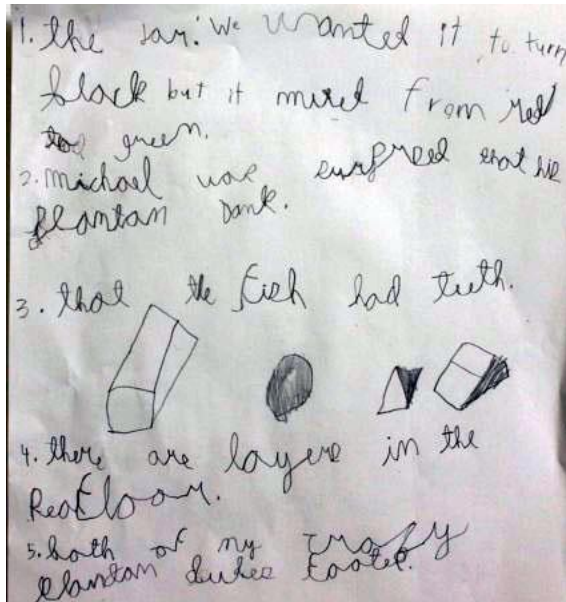 1. the jar: we wanted it to turn
black but it mixed from red
to green.
2. michael was surprised that his
plantan sank.
3. that the fish had teeth.
4. there are layers in the
seafloor.
5. both of my crazy
plantan